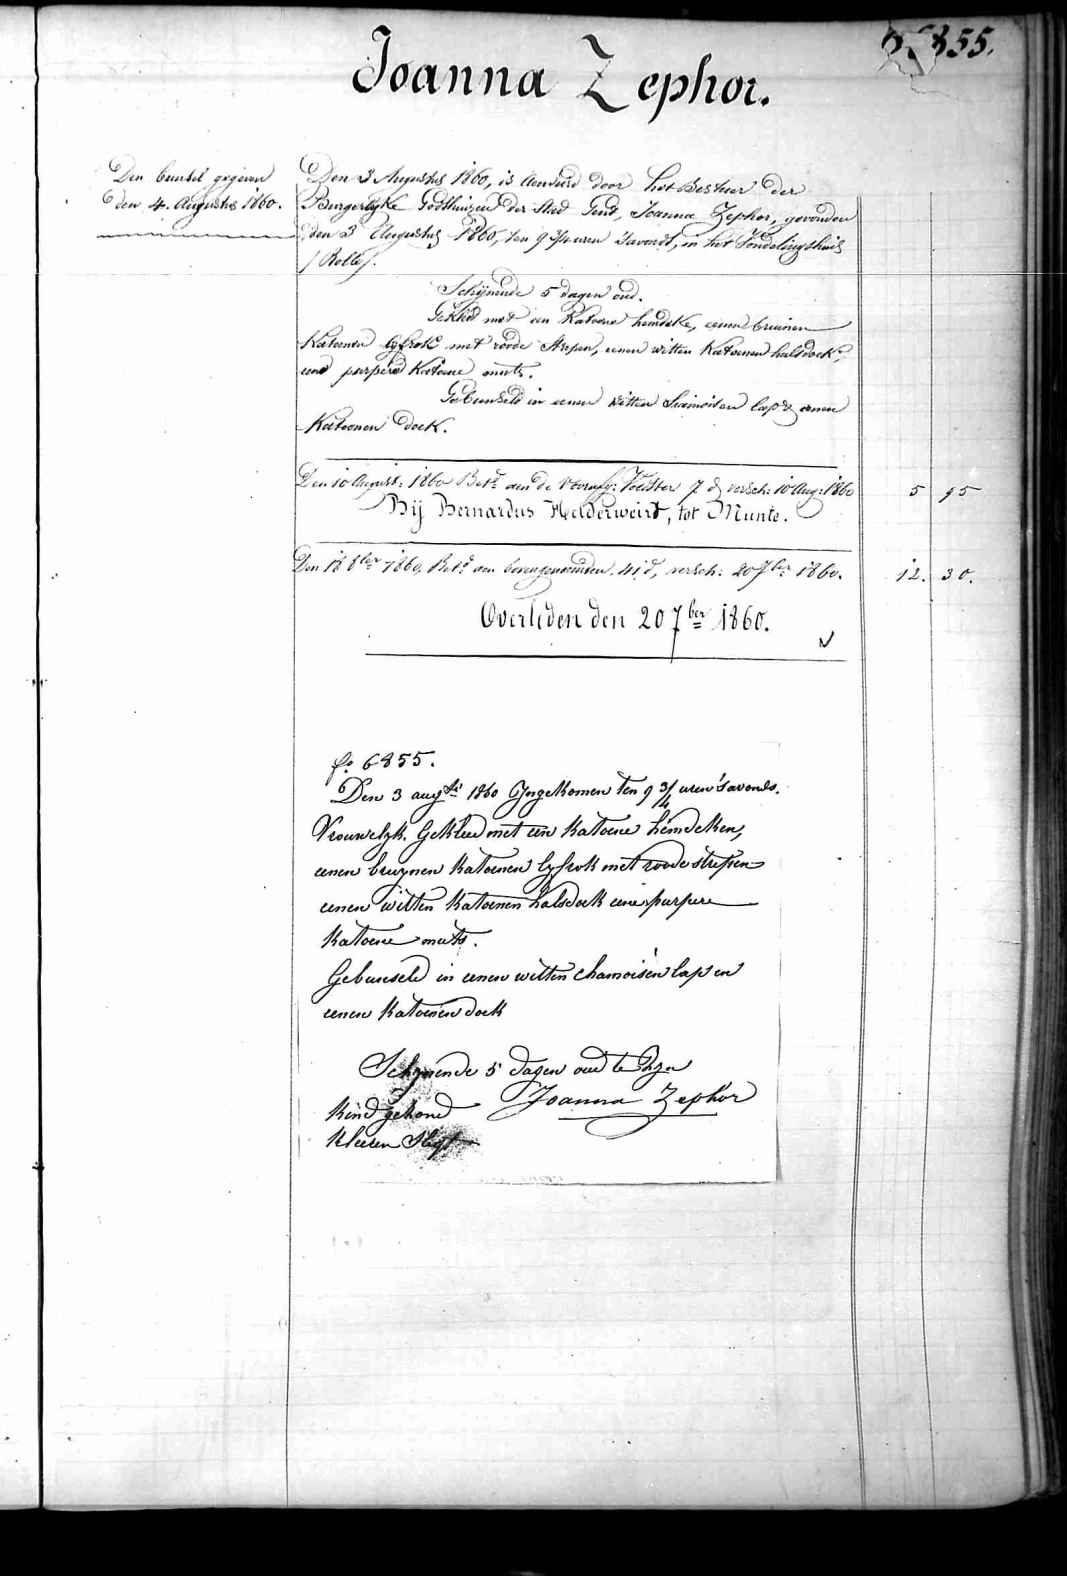 6855.
Joanna Zephor.
Den bundel gegeven
den 4. Augustus 1860.
Den 3 Augustus 1860, is aenveird door het Bestuer der
Burgerlyke Godshuizen der Stad Gend, Joanna Zephor, gevonden
den 3 Augustus 1860, ten 9 3/4 uren 's avonds, in het Vondelingshuis
/ Rolle /.
Schijnende 5 dagen oud.
Gekleed met een Katoene hemdeke, eenen bruinen
Katoenen lyfrok met roode strepen, eenen witten Katoenen halsdoek,
eene purpere Katoene muts.
Gebunseld in eenen witten Siamoisen lap & eenen
Katoenen doek.
Den 10 August: 1860 Bet.d aen de Voorszg: Voedster 7 d. versch: 10 Aug: 1860 5 95
Bij Bernardus Helderweirt, tot Munte.
Den 18 8ber 1860. Bet.d aen bovengenoemden. 41 d, versch: 20 7ber 1860. 12. 30.
Overleden den 20 7ber 1860.
fo 6855.
Den 3 augsti 1860 Ingekomen ten 9 3/4 uren 's avonds.
Vrouwelyk. Gekleed met een katoene hemdeken,
eenen bruynen katoenen lyfrok met roode strepen
eenen witten katoenen halsdoek eene purpere
katoene muts.
Gebunseld in eenen witten chamoisen lap en
eenen katoenen doek
Schynende 5 dagen oud te zyn
Kind gezond Joanna Zephor
Kleeren Slegt